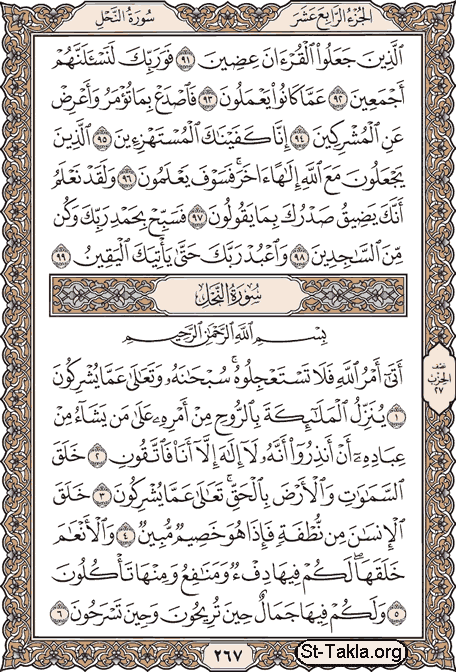 سُورَةُ النَّحْلِ الجُزْءُ الرَّابِعَ عَشَرَ
الَّذِينَ جَعَلُوا۟ الْقُرْءَانَ عِضِينَ ٩١ فَوَرَبِّكَ لَنَسْـَٔلَنَّهُمْ
أَجْمَعِينَ ٩٢ عَمَّا كَانُوا۟ يَعْمَلُونَ ٩٣ فَاصْدَعْ بِمَا تُؤْمَرُ وَأَعْرِضْ
عَنِ الْمُشْرِكِينَ ٩٤ إِنَّا كَفَيْنَٰكَ الْمُسْتَهْزِءِينَ ٩٥ الَّذِينَ
يَجْعَلُونَ مَعَ اللَّهِ إِلَٰهًا ءَاخَرَ ۚ فَسَوْفَ يَعْلَمُونَ ٩٦ وَلَقَدْ نَعْلَمُ
أَنَّكَ يَضِيقُ صَدْرُكَ بِمَا يَقُولُونَ ٩٧ فَسَبِّحْ بِحَمْدِ رَبِّكَ وَكُن
مِّنَ السَّٰجِدِينَ ٩٨ وَاعْبُدْ رَبَّكَ حَتَّىٰ يَأْتِيَكَ الْيَقِينُ ٩٩
سُورَةُ النَّحْلِ
بِسْمِ اللَّهِ الرَّحْمَٰنِ الرَّحِيمِ
أَتَىٰٓ أَمْرُ اللَّهِ فَلَا تَسْتَعْجِلُوهُ ۚ سُبْحَٰنَهُۥ وَتَعَٰلَىٰ عَمَّا يُشْرِكُونَ
١ يُنَزِّلُ الْمَلَٰٓئِكَةَ بِالرُّوحِ مِنْ أَمْرِهِۦ عَلَىٰ مَن يَشَآءُ مِنْ
عِبَادِهِۦٓ أَنْ أَنذِرُوٓا۟ أَنَّهُۥ لَآ إِلَٰهَ إِلَّآ أَنَا۠ فَاتَّقُونِ ٢ خَلَقَ
السَّمَٰوَٰتِ وَالْأَرْضَ بِالْحَقِّ ۚ تَعَٰلَىٰ عَمَّا يُشْرِكُونَ ٣ خَلَقَ
الْإِنسَٰنَ مِن نُّطْفَةٍ فَإِذَا هُوَ خَصِيمٌ مُّبِينٌ ٤ وَالْأَنْعَٰمَ
خَلَقَهَا ۗ لَكُمْ فِيهَا دِفْءٌ وَمَنَٰفِعُ وَمِنْهَا تَأْكُلُونَ
٥ وَلَكُمْ فِيهَا جَمَالٌ حِينَ تُرِيحُونَ وَحِينَ تَسْرَحُونَ ٦
نِصْف
الحِزْبِ
٢٧
٢٦٧
St-Takla.org